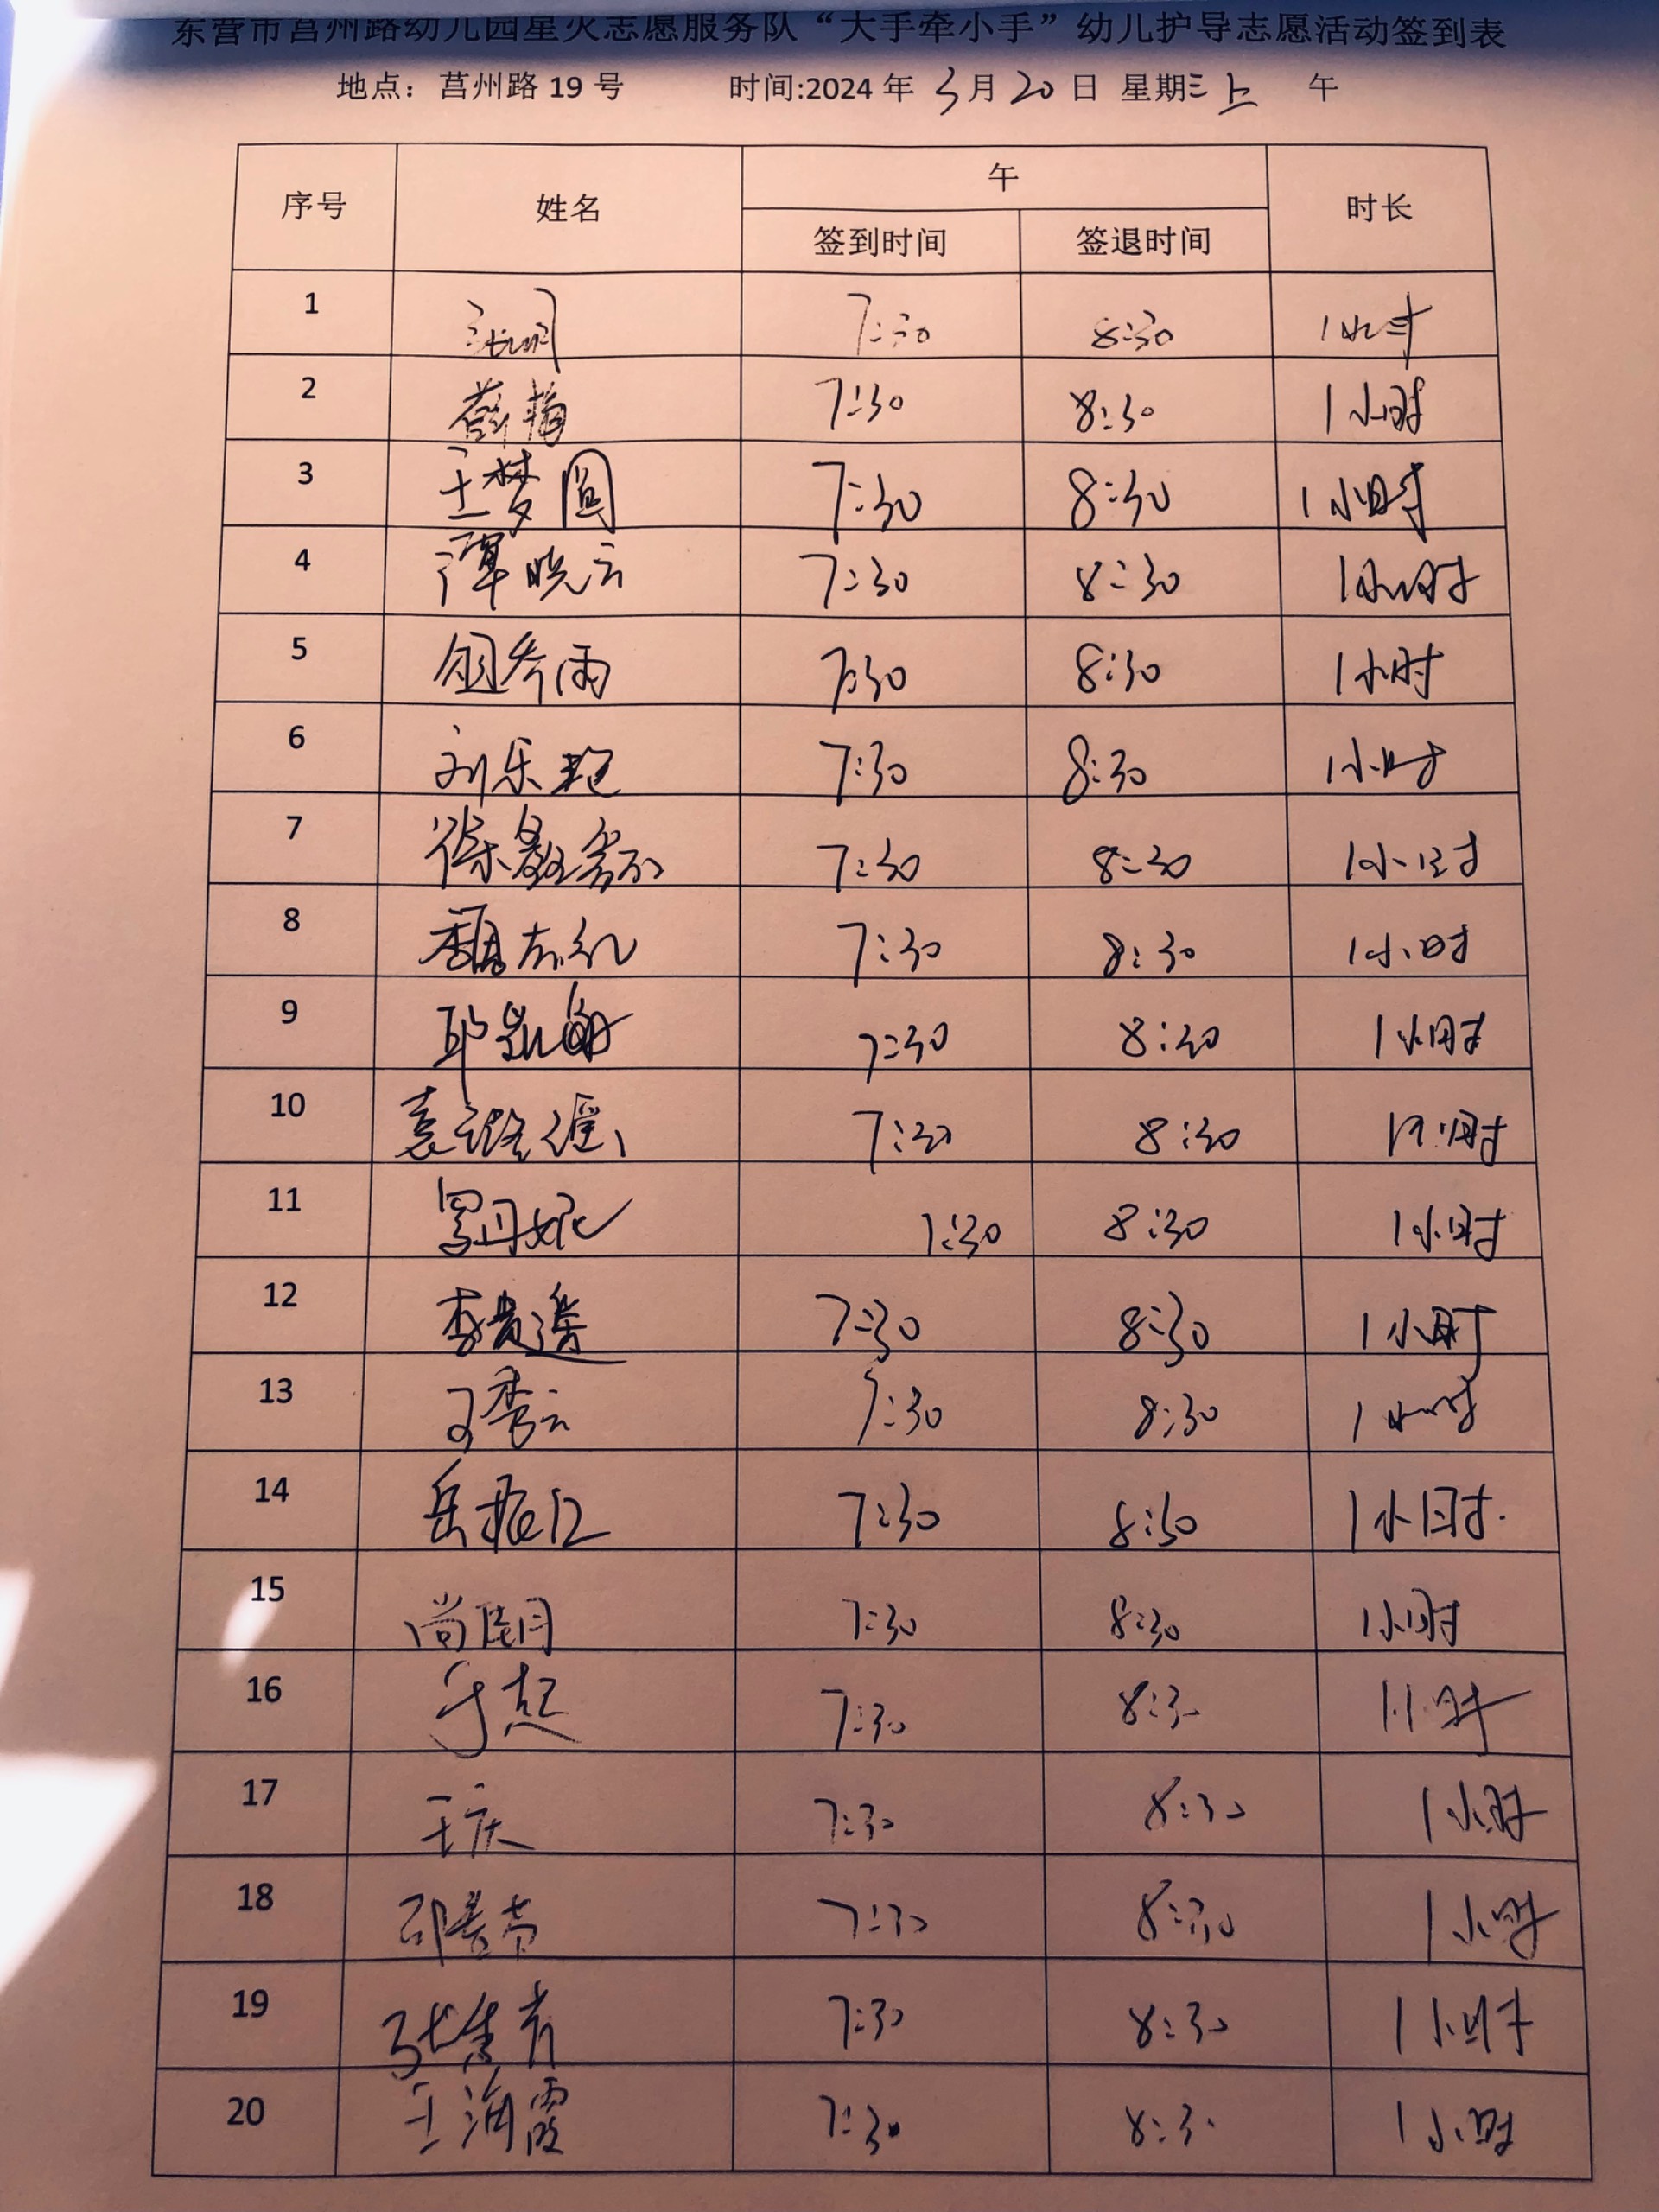 东营市莒州路幼儿园星火志愿服务队“大手牵小手”幼儿护导志愿活动签到表
地点：莒州路 19 号 时间:2024 年 3月 20 日 星期三上 午
序号 姓名 午 时长
签到时间 签退时间
1 7:30 8:30 1小时
2 薛梅 7:30 8:30 1小时
3 王梦圆 7:30 8:30 1小时
4 谭晓云 7:30 8:30 1小时
5 7:30 8:30 1小时
6 刘乐艳 7:30 8:30 1小时
7 7:30 8:30 1小时
8 7:30 8:30 1小时
9 7:30 8:30 1小时
10 袁璐瑶 7:30 8:30 1小时
11 罗丹妮 7:30 8:30 1小时
12 7:30 8:30 1小时
13 王秀云 7:30 8:30 1小时
14 岳振江 7:30 8:30 1小时
15 尚明月 7:30 8:30 1小时
16 于超 7:30 8:30 1小时
17 王庆 7:30 8:30 1小时
18 7:30 8:30 1小时
19 7:30 8:30 1小时
20 王海霞 7:30 8:30 1小时